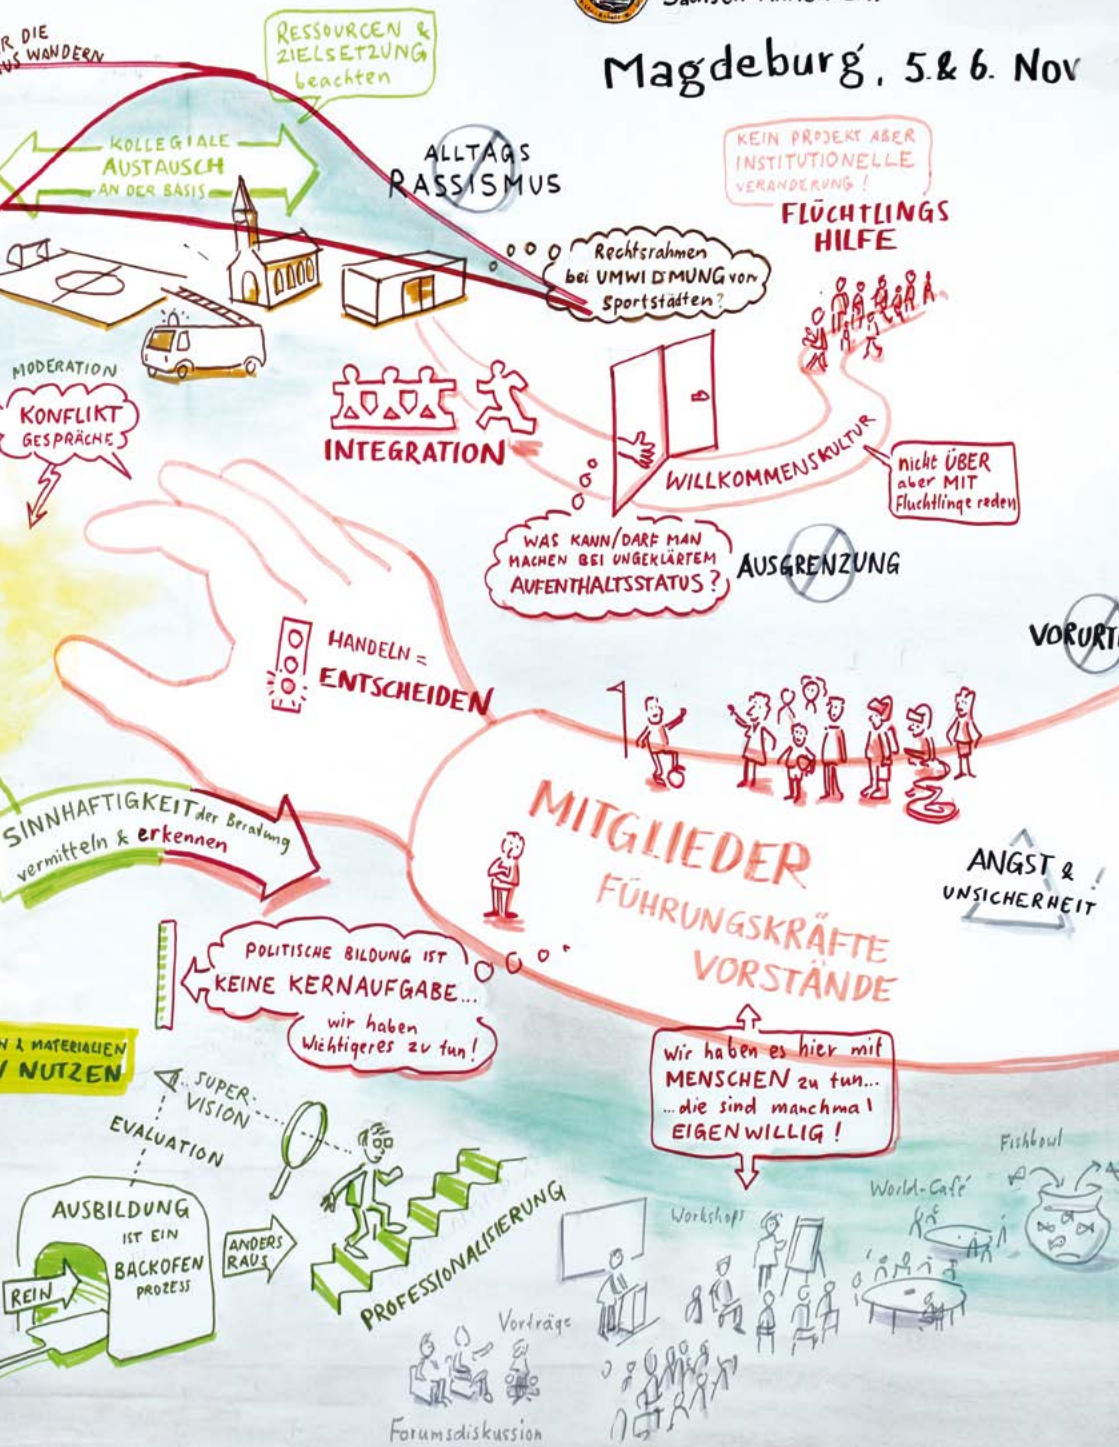 Magdeburg, 5.& 6. Nov
R DIE
US WANDERN
RESSOURCEN &
ZIELSETZUNG
beachten
KOLLEGIALE
AUSTAUSCH
AN DER BASIS
ALLTAGS
RASSISMUS
KEIN PROJEKT ABER
INSTITUTIONELLE
VERANDERUNG!
FLÜCHTLINGS
HILFE
Rechtsrahmen
bei UMWIDMUNG von
Sportstädten?
MODERATION
KONFLIKT
GESPRÄCHE
INTEGRATION
WILLKOMMENSKULTUR
nicht ÜBER
aber MIT
Fluchtlinge reden
WAS KANN/DARF MAN
MACHEN BEI UNGEKLÄRTEM
AUFENTHALTSSTATUS?
AUSGRENZUNG
VORURT
HANDELN =
ENTSCHEIDEN
SINNHAFTIGKEIT der Beratung
vermitteln & erkennen
MITGLIEDER
FÜHRUNGSKRÄFTE
VORSTÄNDE
ANGST &
UNSICHERHEIT!
POLITISCHE BILDUNG IST
KEINE KERNAUFGABE...
wir haben
Wichtigeres zu tun!
Wir haben es hier mit
MENSCHEN zu tun...
...die sind manchmal
EIGENWILLIG!
N & MATERIALIEN
NUTZEN
SUPER-
VISION
EVALUATION
AUSBILDUNG
IST EIN
BACKOFEN
PROZESS
REIN
ANDERS
RAUS
PROFESSIONALISIERUNG
Workshops
World-Café
Fishbowl
Vorträge
Forumsdiskussion